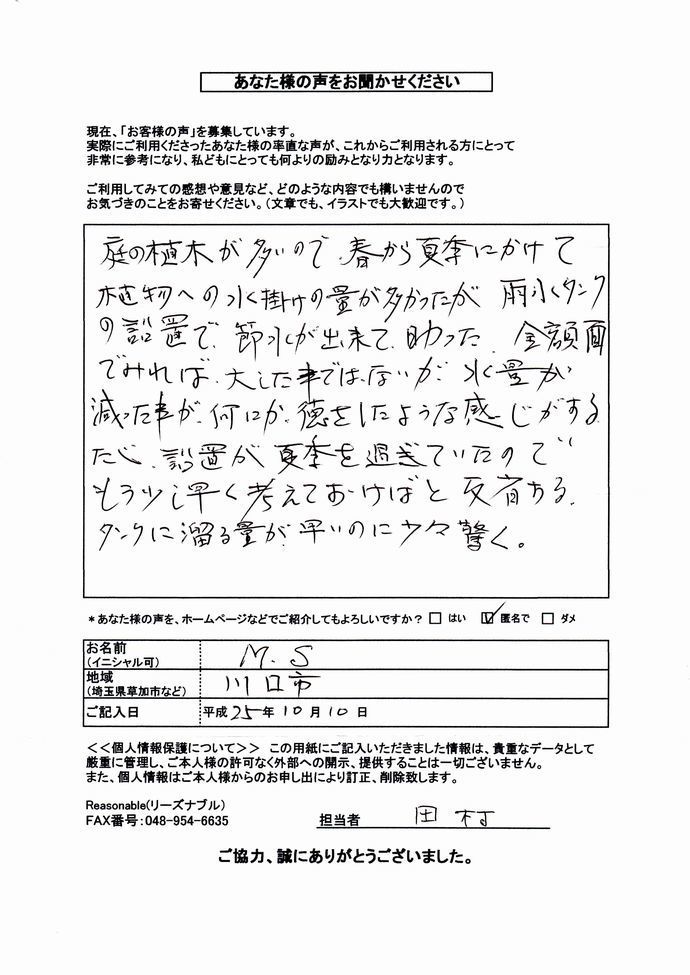 あなた様の声をお聞かせください
現在、「お客様の声」を募集しています。
実際にご利用くださったあなた様の率直な声が、これからご利用される方にとって
非常に参考になり、私どもにとっても何よりの励みとなり力となります。
ご利用してみての感想や意見など、どのような内容でも構いませんので
お気づきのことをお寄せください。(文章でも、イラストでも大歓迎です。)
庭の植木が多いので、春から夏季にかけて
植物への水掛けの量が多かったが 雨水タンク
の設置で、節水が出来て、助った。金額面
でみれば、大した事ではないが、水量が
減った事が、何にか、徳をしたような感じがする
ただ、設置が夏季を過ぎていたので
もう少し早く考えておけばと反省ある、
タンクに溜る量が、早いのに少々驚く。
*あなた様の声を、ホームページなどでご紹介してもよろしいですか? □ はい ☑ 匿名で □ ダメ
お名前
(イニシャル可) M.S
地域
(埼玉県草加市など) 川口市
ご記入日 平成 25 年 10 月 10 日
<<個人情報保護について>> この用紙にご記入いただきました情報は、貴重なデータとして
厳重に管理し、ご本人様の許可なく外部への開示、提供することは一切ございません。
また、個人情報はご本人様からのお申し出により訂正、削除致します。
Reasonable(リーズナブル)
FAX番号:048-954-6635 担当者 田村
ご協力、誠にありがとうございました。